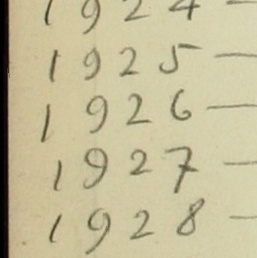 1924 —
1925 —
1926 —
1927 —
1928 —